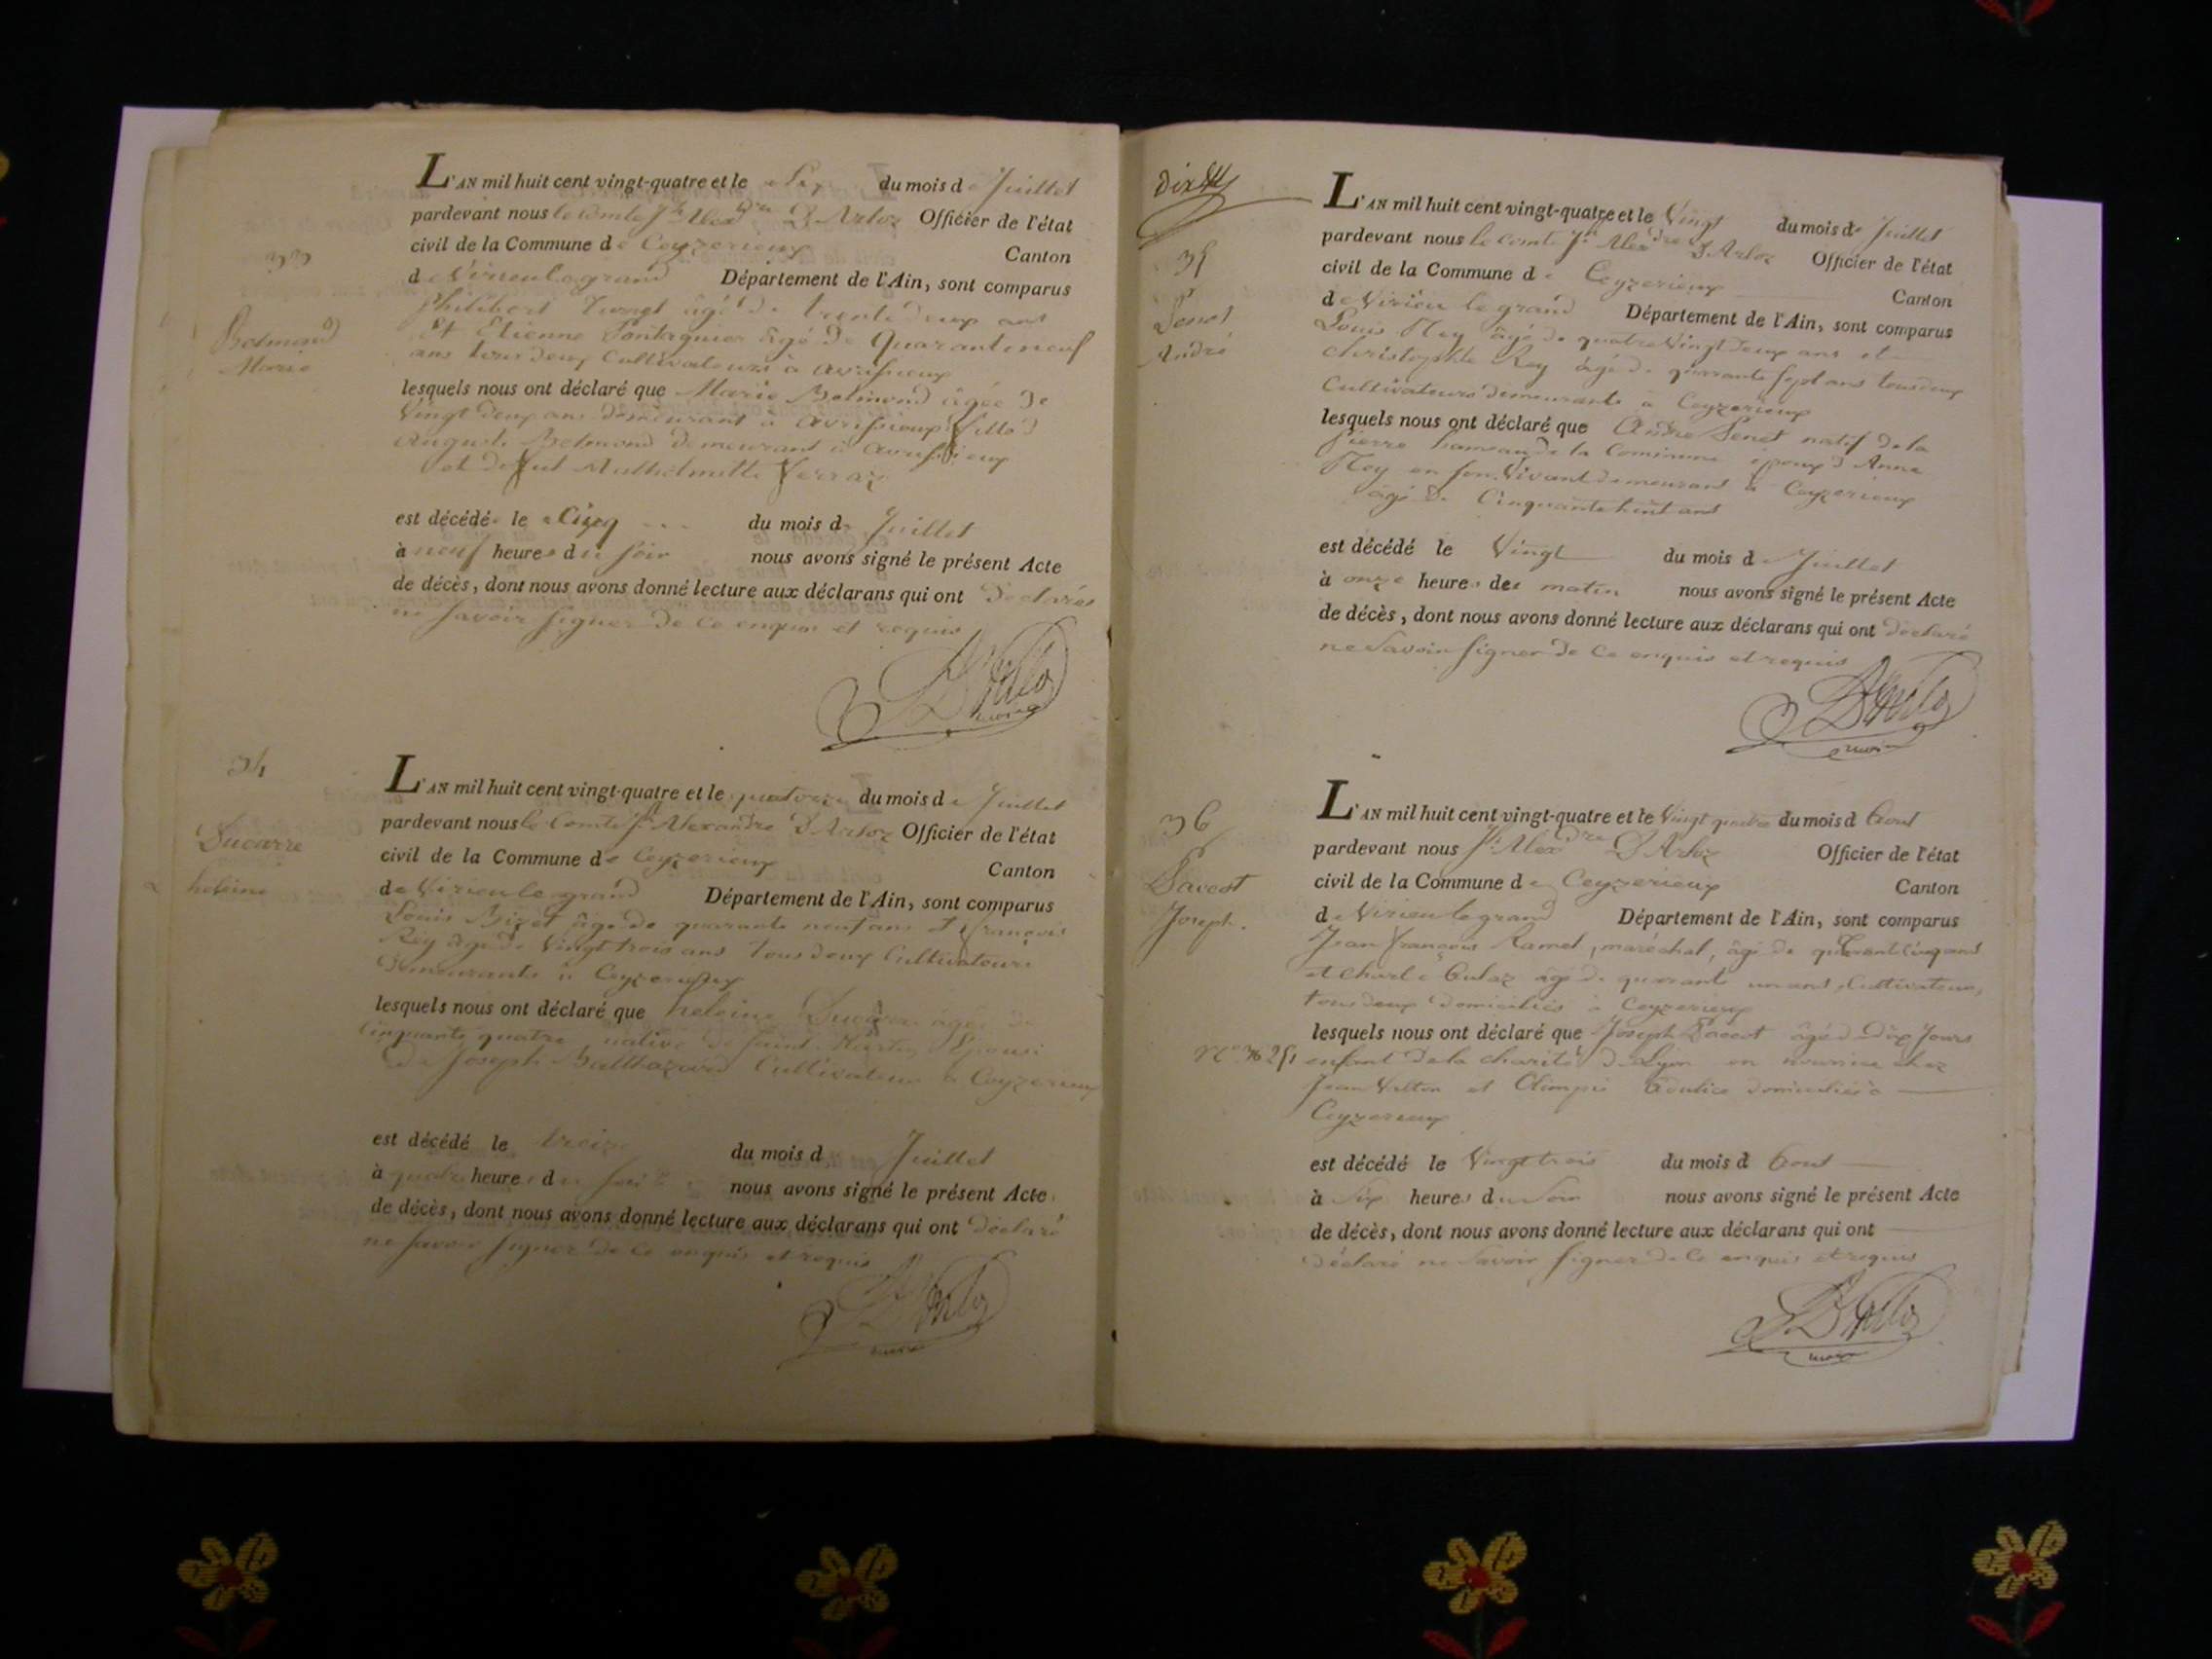 33
Belmond
Marie
L'AN mil huit cent vingt-quatre et le Six du mois de Juillet
pardevant nous le comte Jh Alexdre D'Arloz Officier de l'état
civil de la Commune de Ceyzerieux Canton
de Virieu le grand Département de l'Ain, sont comparus
Philibert âgé de trente deux ans
Et Etienne Pontagnier âgé de Quarante neuf
ans tous deux Cultivateurs à avrissieux
lesquels nous ont déclaré que Marie Belmond âgée de
Vingt deux ans demeurant à avrissieux fille d
Auguste Belmond demeurant à avrissieux
et de
est décédé le Cinq du mois de Juillet
à neuf heures du soir nous avons signé le présent Acte
de décès, dont nous avons donné lecture aux déclarans qui ont Déclarés
ne savoir signer de ce enquis et requis
D'Arloz
maire
34
Ducarre
heleine
L'AN mil huit cent vingt-quatre et le quatorze du mois de Juillet
pardevant nous le Comte Jh Alexandre D'Arloz Officier de l'état
civil de la Commune de Ceyzerieux Canton
de Virieu le grand Département de l'Ain, sont comparus
Louis Bizet âgé de quarante neuf ans et françois
Rey âgé de Vingt trois ans tous deux Cultivateurs
demeurants à Ceyzerieux
lesquels nous ont déclaré que heleine Ducarre âgée de
Cinquante quatre native de Saint Martin Epouse
de Joseph Balthazard Cultivateur à Ceyzerieux
est décédé le treize du mois d Juillet
à quatre heures du soir nous avons signé le présent Acte
de décès, dont nous avons donné lecture aux déclarans qui ont déclaré
ne savoir signer de ce enquis et requis
D'Arloz
maire
dix
35
Penet
André
L'AN mil huit cent vingt-quatre et le Vingt du mois de Juillet
pardevant nous le comte Jh Alexdre D'Arloz Officier de l'état
civil de la Commune de Ceyzerieux Canton
de Virieu le grand Département de l'Ain, sont comparus
Louis Rey âgé de quatre Vingt deux ans et
christophle Rey âgé de quarante sept ans tous deux
Cultivateurs demeurants à Ceyzerieux
lesquels nous ont déclaré que André Penet natif de la
pierre hameau de la Commune époux d Anne
Rey en son Vivant demeurant à Ceyzerieux
âgé de Cinquante huit ans
est décédé le Vingt du mois de Juillet
à onze heures de matin nous avons signé le présent Acte
de décès, dont nous avons donné lecture aux déclarans qui ont déclaré
ne Savoir signer de ce enquis et requis
D'Arloz
maire
36
Paccot
Joseph.
L'AN mil huit cent vingt-quatre et le Vingt quatre du mois d Aout
pardevant nous Jh Alexdre D'Arloz Officier de l'état
civil de la Commune de Ceyzerieux Canton
de Virieu le grand Département de l'Ain, sont comparus
Jean françois Ramel, maréchal, âgé de quarante cinq ans
et Charle âgé de quarante un ans, Cultivateur,
tous deux domiciliés à Ceyzerieux
lesquels nous ont déclaré que Joseph Paccot âgé de dix Jours
enfant de la charité de Lyon en nourrice chez
Jean et Olimpie domiciliés à
Ceyzerieux
est décédé le Vingt trois du mois d Aout
à Six heures du Soir nous avons signé le présent Acte
de décès, dont nous avons donné lecture aux déclarans qui ont
déclaré ne Savoir signer de Ce enquis et requis
D'Arloz
maire